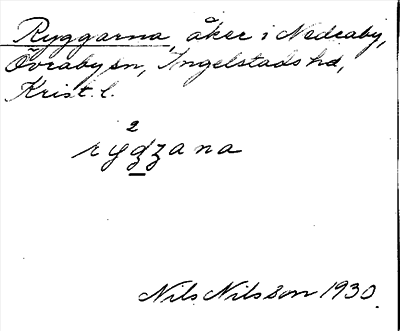 Ryggarna, åker i Nedraby,
Övraby sn, Ingelstads hd,
Krist. l.
2
rygʒana
Nils Nilsson 1930.